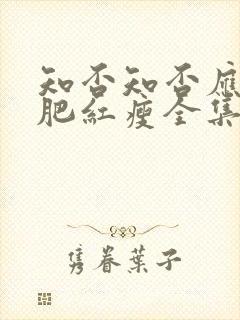 知否知否應
肥紅瘦全集
隽眷葉子